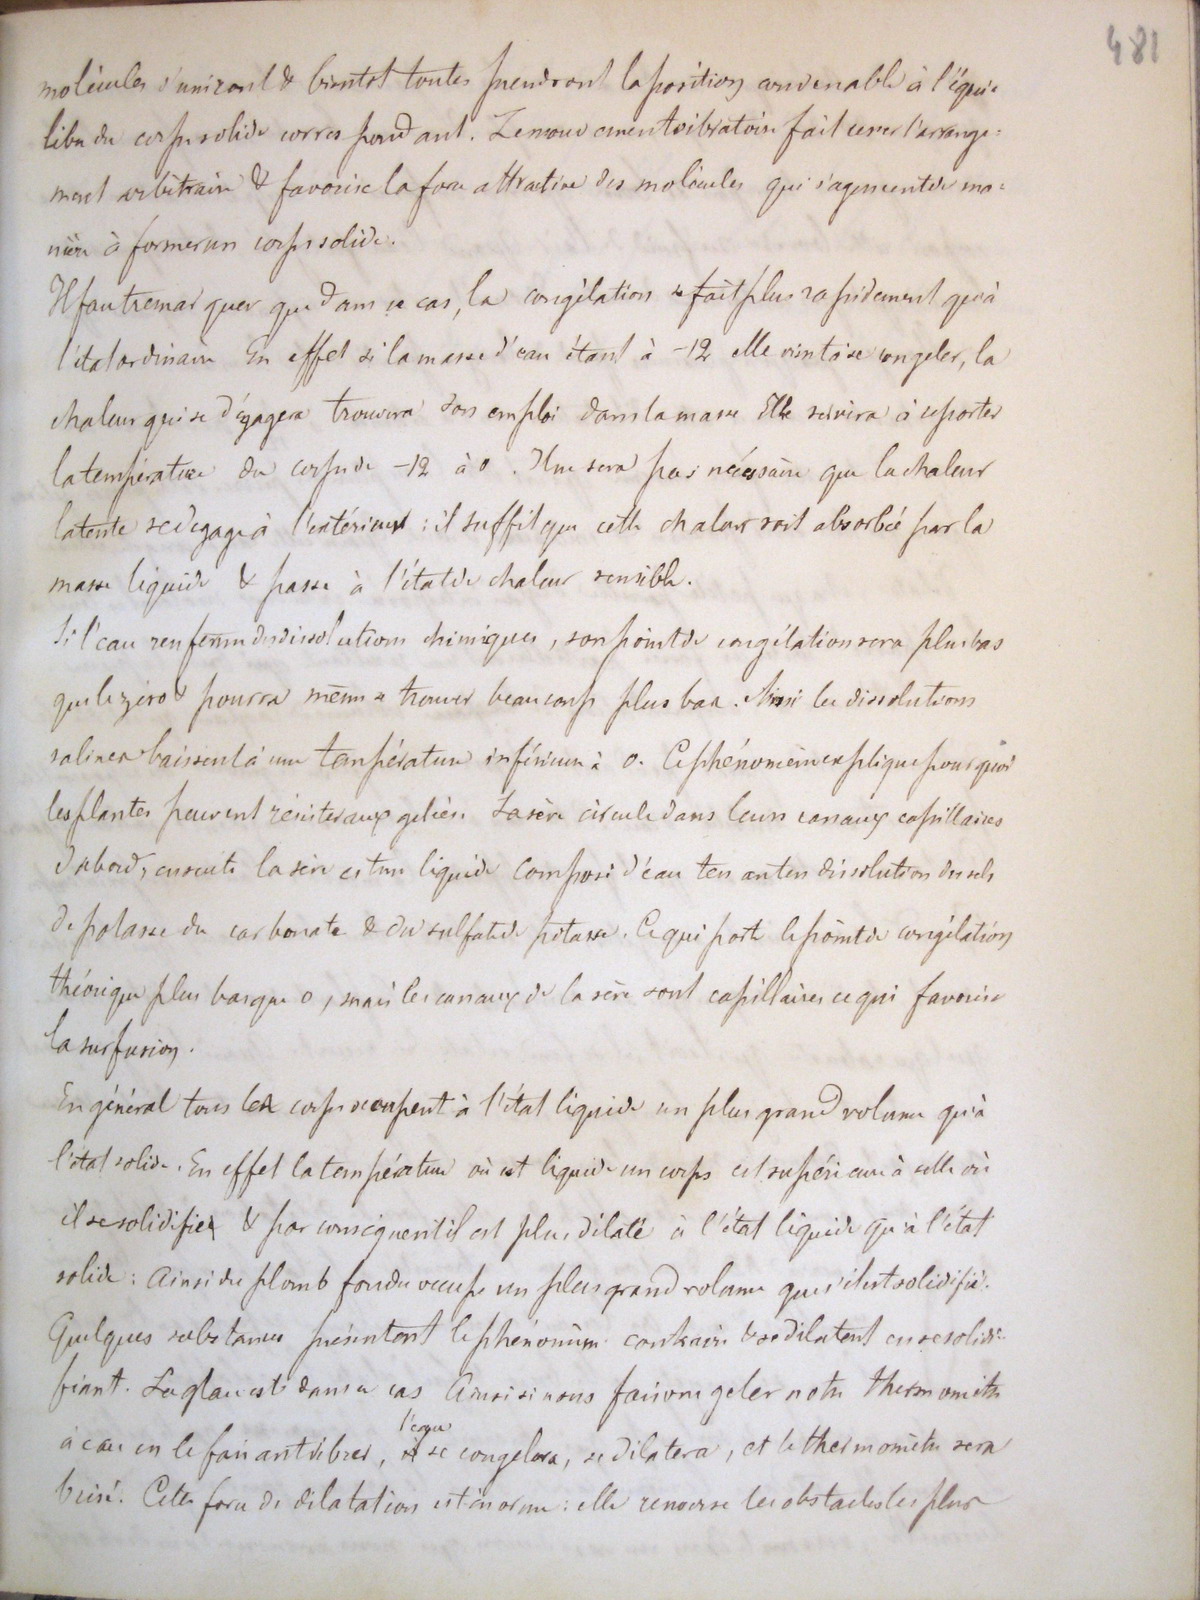 481
molécules s'uniront & bientot toutes prendront la position convenable à l'équi=
libre du corps solide correspondant. Le mouvement vibratoire fait cesser l'arrange=
ment arbitraire & favorise la force attractive des molécules qui s'agencent de ma=
nière à former un corps solide.
Il faut remarquer que dans ce cas, la congélation se fait plus rapidement qu'à
l'état ordinaire En effet si la masse d'eau étant à -12 elle vient à se congeler, la
chaleur qui se dégagera trouvera son emploi dans la masse Elle servira à reporter
la température du corps de -12 à 0. Il ne sera pas nécessaire que la chaleur
latente se dégage à l'extérieur : il suffit que cette chaleur soit absorbée par la
masse liquide & passe à l'état de chaleur sensible.
Si l'eau renferme des dissolutions chimiques, son point de congélation sera plus bas
que le zéro & pourra même se trouver beaucoup plus bas. Ainsi les dissolutions
salines baissent à une température inférieure à 0. Ce phénomène explique pourquoi
les plantes peuvent résister aux gelées. La sève circule dans leurs canaux capillaires
d'abord, ensuite la sève est un liquide composé d'eau tenant en dissolution des sels
de potasse du carbonate & du sulfate de potasse. Ce qui porte le point de congélation
théorique plus bas que 0, mais les canaux de la sève sont capillaires ce qui favorise
la surfusion.
En général tous les corps occupent à l'état liquide un plus grand volume qu'à
l'état solide. En effet la température où est liquide un corps est supérieure à celle où
il se solidifie & par conséquent il est plus dilaté à l'état liquide qu'à l'état
solide : Ainsi du plomb fondu occupe un plus grand volume que s'il est solidifié.
Quelques substances présentent le phénomène contraire & se dilatent en se solidi=
fiant. La glace est dans ce cas Ainsi si nous faisons geler notre thermomètre
à eau en le faisant vibrer, l'eau se congelera, se dilatera, et le thermomètre sera
brisé. Cette force de dilatation est énorme : elle renverse les obstacles les plus